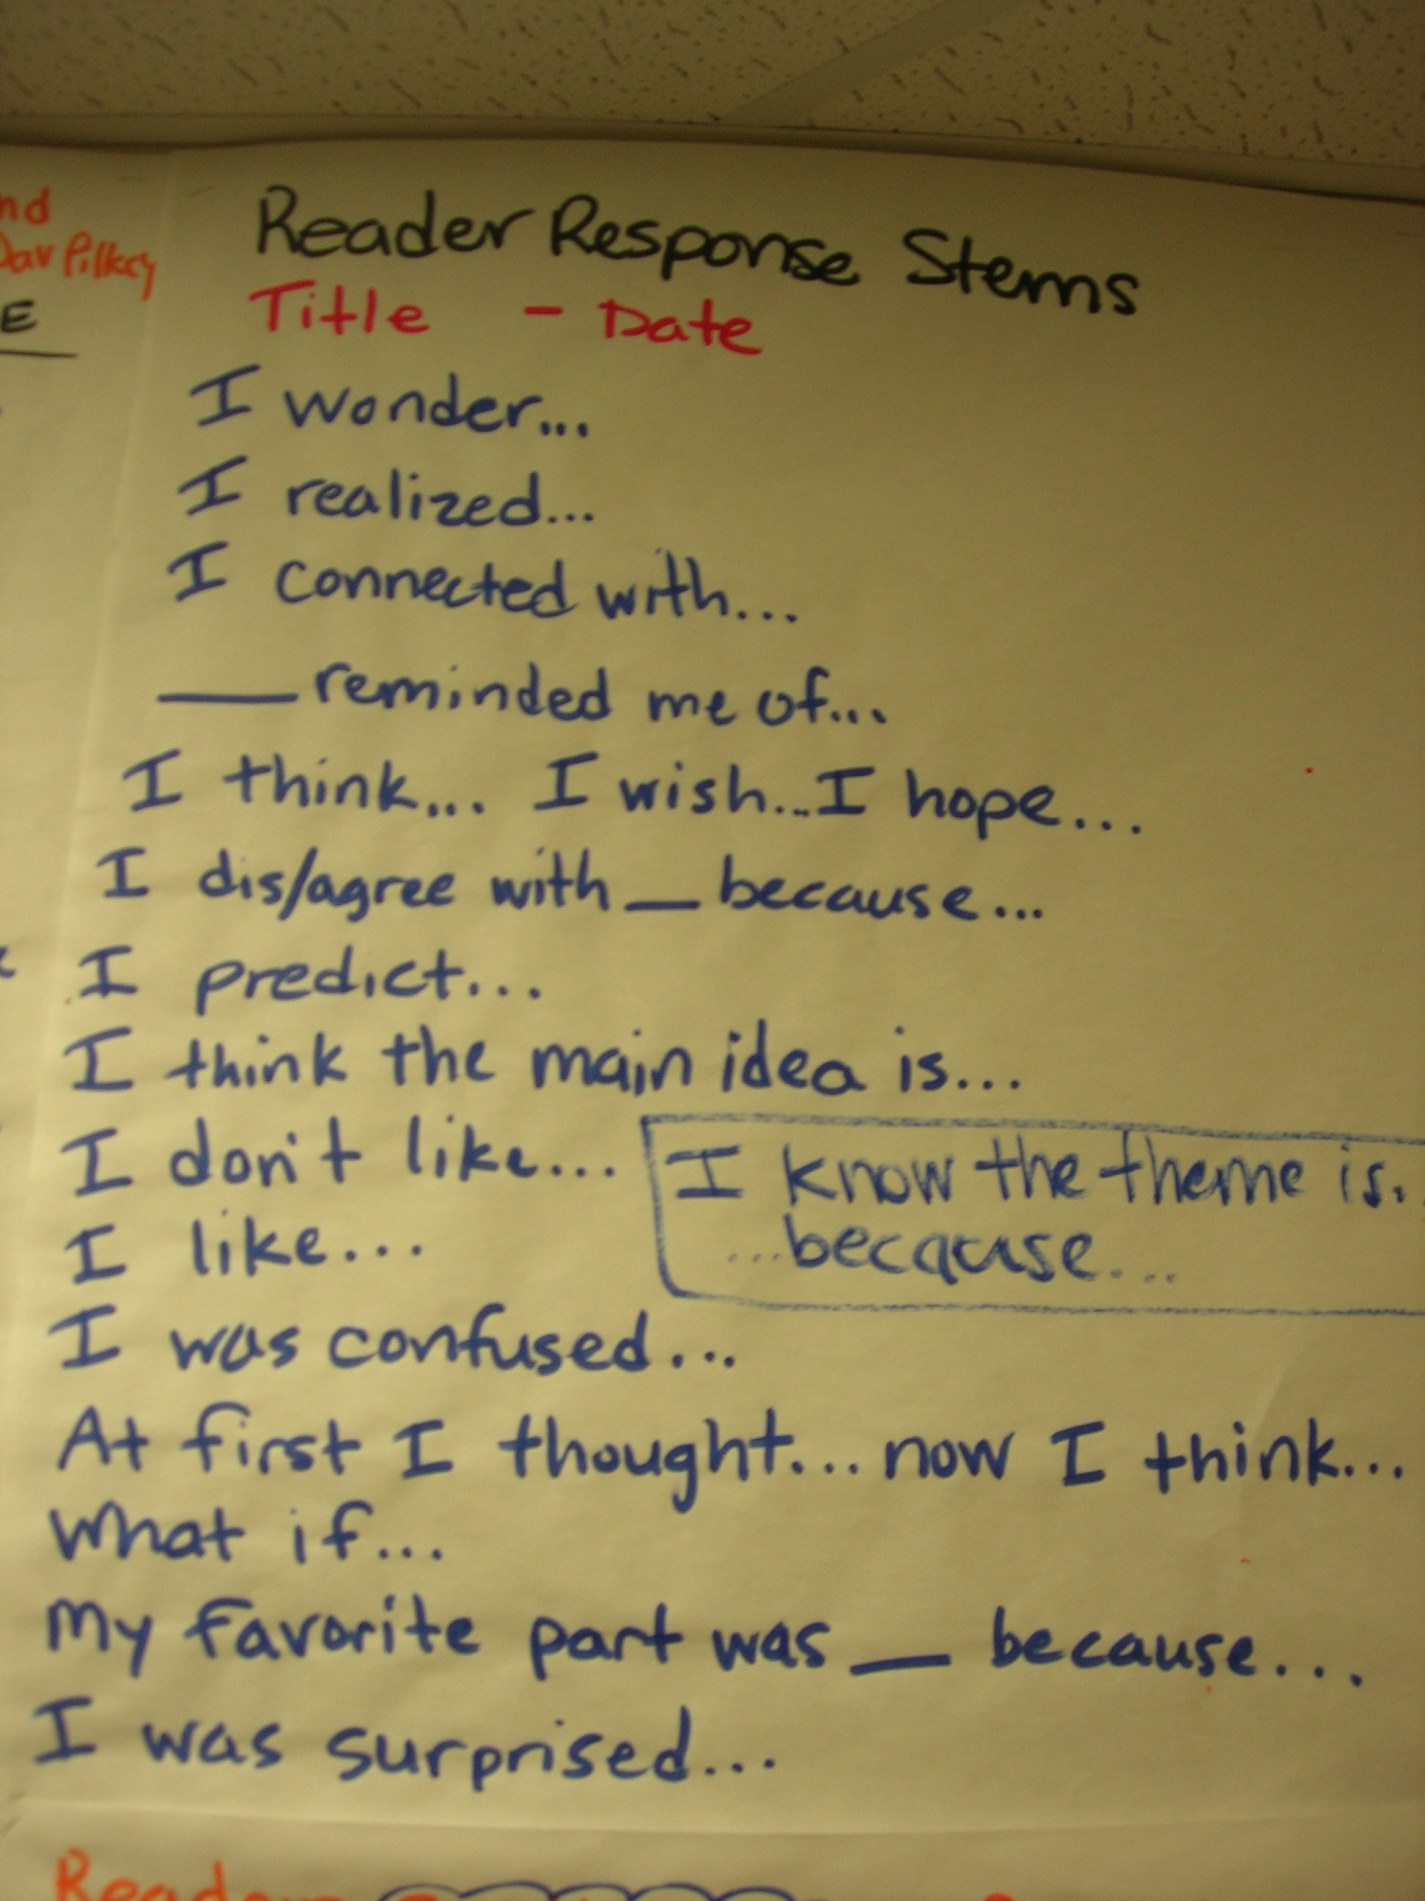 Reader Response Stems
Title - Date
I wonder...
I realized...
I connected with...
___ reminded me of...
I think... I wish...I hope...
I dis/agree with __ because...
I predict...
I think the main idea is...
I don't like...
I know the theme is.
...because...
I like...
I was confused...
At first I thought... now I think...
What if...
My favorite part was __ because...
I was surprised...
Dav Pilkey
E